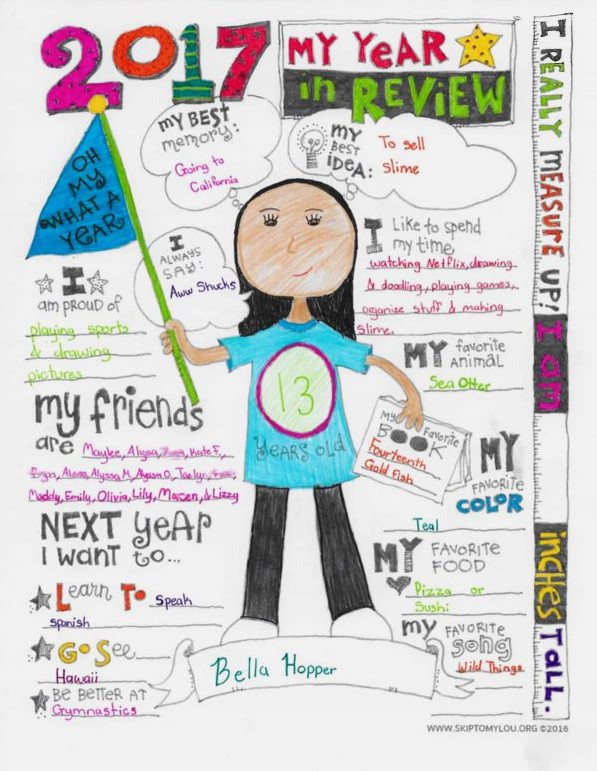 2017
MY YEAR
in REVIEW
OH
MY
WHAT A
YEAR
my BEST
memory:
Going to
California
my
BEST
IDeA:
To sell
slime
I
ALWAYS
SAY:
Aww Shucks
I
am PROUD OF
playing sports
& drawing
pictures
I Like to spend
my time,
watching Netflix, drawing
& doodling, playing games,
organize stuff & making
slime.
MY favorite
ANIMAL
Sea Otter
my friends
are Maylee, Alyssa, Kate F.,
Alyssa M, Alyssa O, Jaelyn,
Maddy, Emily, Olivia, Lily, & Lizzy
13
YEARS old
My Favorite
BOOK
Fourteenth
Gold Fish
MY
FAVORITE
COLOR
Teal
NEXT YEAR
I WANT to...
Learn To Speak
Spanish
Go See
Hawaii
BE BETTER AT
Gymnastics
MY FAVORITE
FOOD
Pizza or
Sushi
my FAVORITE
Song
Wild Things
Bella Hopper
I REALLY MEASURE UP! I am inches TaLL.
WWW.SKIPTOMYLOU.ORG ©2016